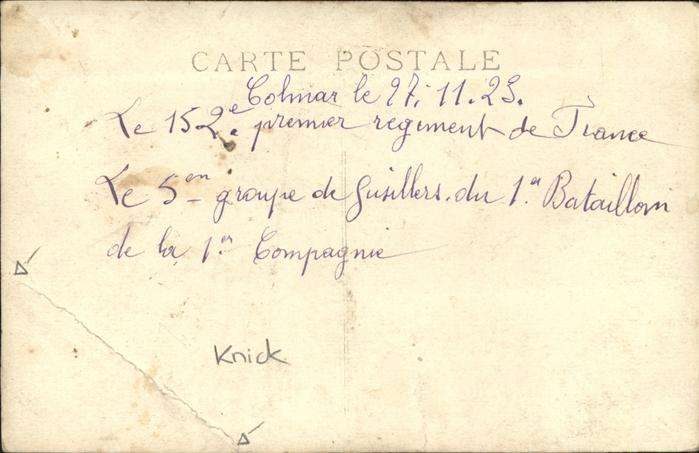 CARTE POSTALE
Colmar le 27.11.25.
Le 152e premier regiment de France
Le 5en groupe de fusillers du 1er Bataillon
de la 1er Compagnie
Knick